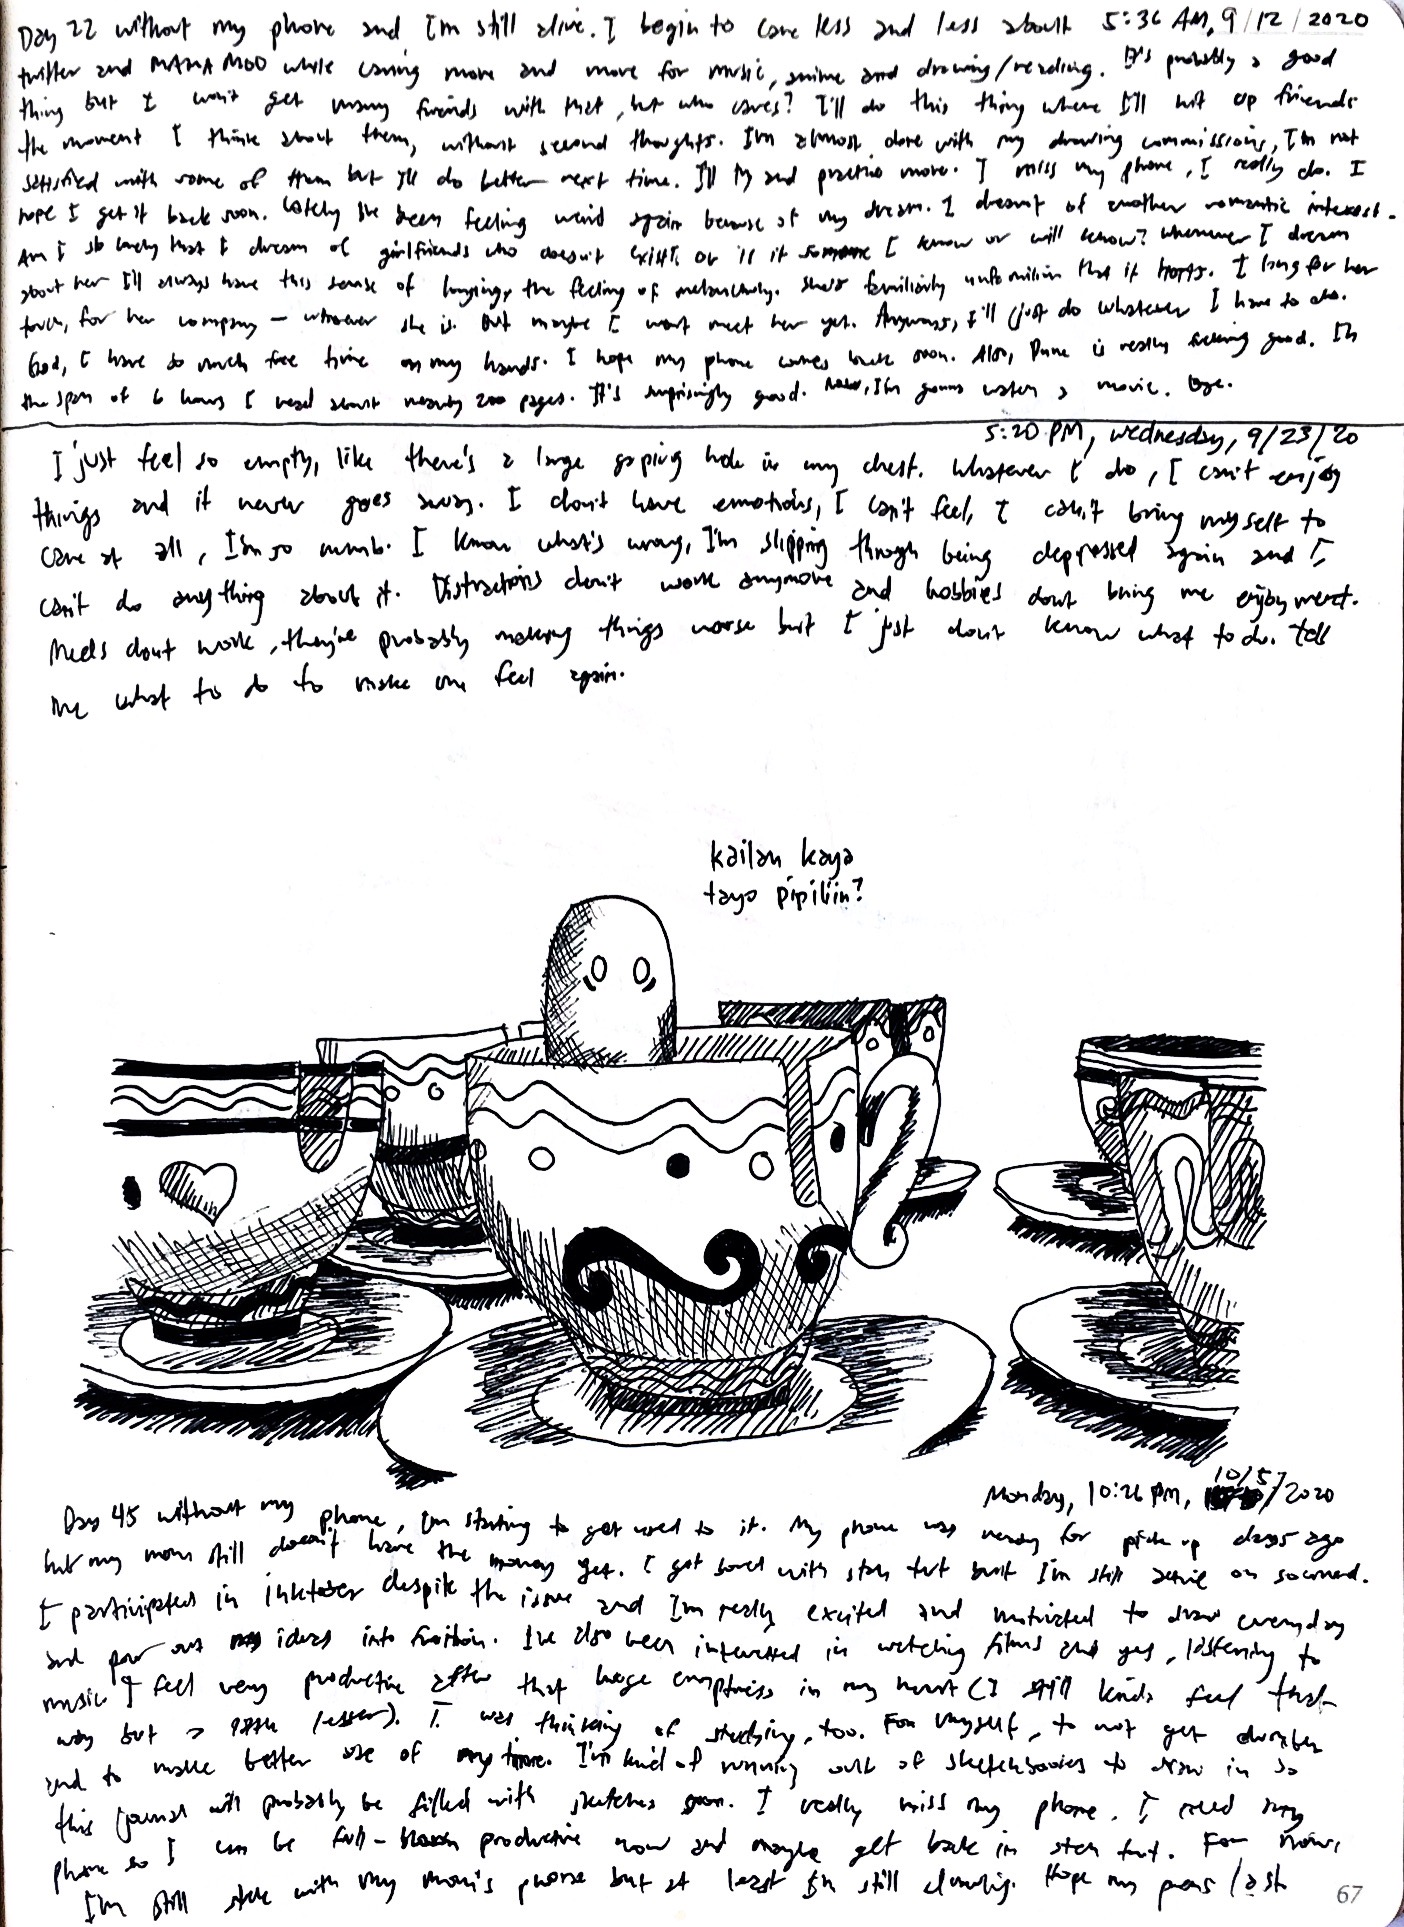 Day 22 without my phone and I'm still alive. I begin to care less and less about 5:36 AM, 9/12/2020
twitter and MAMAMOO while caring more and more for music, anime and drawing/reading. It's probably a good
thing but I won't get many friends with that, but who cares? I'll do this thing where I'll hit up friends
the moment I think about them, without second thoughts. I'm almost done with my drawing commissions, I'm not
satisfied with some of them but I'll do better next time. I'll try and practice more. I miss my phone, I really do. I
hope I get it back soon. Lately I've been feeling weird again because of my dream. I dreamt of another romantic interest.
Am I so lonely that I dream of girlfriends who doesn't exist or is it someone I know or will know? Whenever I dream
about her I'll always have this sense of longing, the feeling of melancholy. She's familiarly unfamiliar that it hurts. I long for her
touch, for her company — whoever she is. But maybe I wont meet her yet. Anyways, I'll just do whatever I have to do.
God, I have so much free time on my hands. I hope my phone comes back soon. Also, Dune is really fucking good. In
the span of 6 hours I read about nearly 200 pages. It's surprisingly good. Now, I'm gonna watch a movie. Bye.
5:20 PM, Wednesday, 9/23/20
I just feel so empty, like there's a large gaping hole in my chest. Whatever I do, I can't enjoy
things and it never goes away. I don't have emotions, I can't feel, I can't bring myself to
care at all, I'm so numb. I know what's wrong, I'm slipping through being depressed again and I
can't do anything about it. Distractions don't work anymore and hobbies dont bring me enjoyment.
Meds dont work, they're probably making things worse but I just don't know what to do. Tell
me what to do to make me feel again.
kailan kaya
tayo pipiliin?
Monday, 10:26 PM, 10/5/2020
Day 45 without my phone, I'm starting to get used to it. My phone was ready for pick up days ago
but my mom still doesn't have the money yet. I got bored with stan twt but I'm still active on
I participated in inktober despite the issue and I'm really excited and motivated to draw everyday
and pour out my ideas into fruition. I've also been interested in watching films and yes, listening to
music. I feel very productive after that huge emptiness in my heart (I still kinda feel that
way but a little lesser). I was thinking of studying, too. For myself, to not get dumber
and to make better use of my time. I'm kind of running out of sketchbooks to draw in so
this journal will probably be filled with sketches soon. I really miss my phone. I need my
phone so I can be full-blown productive now and maybe get back in stan twt. For now,
I'm still stuck with my mom's phone but at least I'm still drawing. Hope my pens last
67